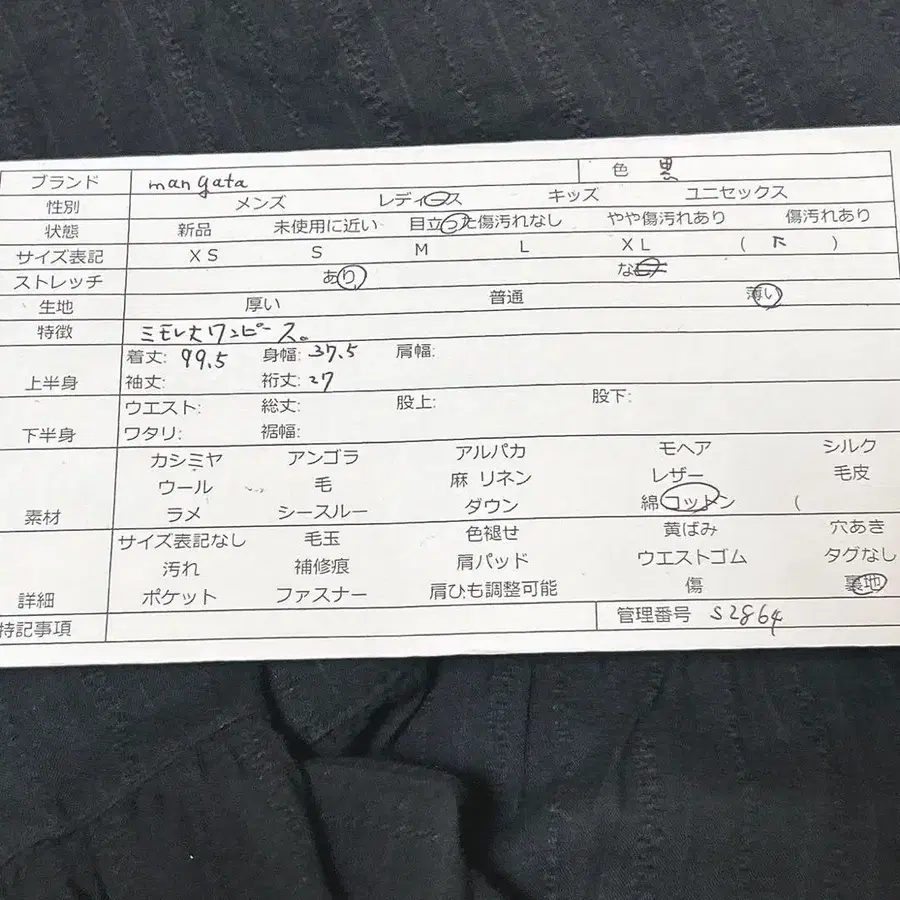 ブランド mangata 色 黒
性別 メンズ レディース キッズ ユニセックス
状態 新品 未使用に近い 目立った傷汚れなし やや傷汚れあり 傷汚れあり
サイズ表記 XS S M L XL ( )
ストレッチ あり なし
生地 厚い 普通 薄い
特徴 ミモレ丈ワンピース。
上半身 着丈: 99.5 身幅: 37.5 肩幅:
袖丈: 裄丈: 27
下半身 ウエスト: 総丈: 股上: 股下:
ワタリ: 裾幅:
素材 カシミヤ アンゴラ アルパカ モヘア シルク
ウール 毛 麻 リネン レザー 毛皮
ラメ シースルー ダウン 綿 コットン (
詳細 サイズ表記なし 毛玉 色褪せ 黄ばみ 穴あき
汚れ 補修痕 肩パッド ウエストゴム タグなし
ポケット ファスナー 肩ひも調整可能 傷 裏地
特記事項 管理番号 S2864